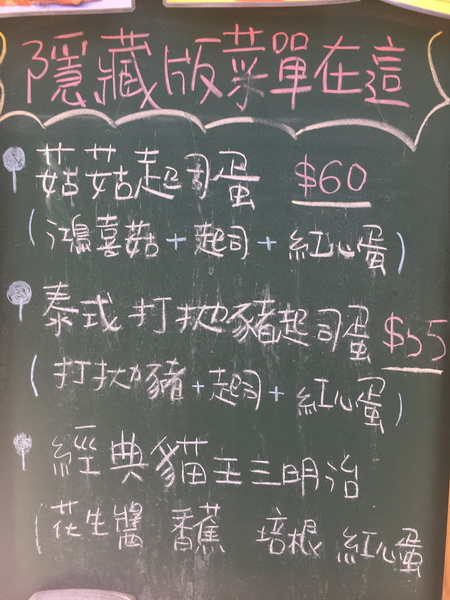 隱藏版菜單在這
菇菇起司蛋 $60
(鴻喜菇+起司+紅心蛋)
泰式打拋豬起司蛋 $55
(打拋豬+起司+紅心蛋)
經典貓王三明治
(花生醬 香蕉 培根 紅心蛋